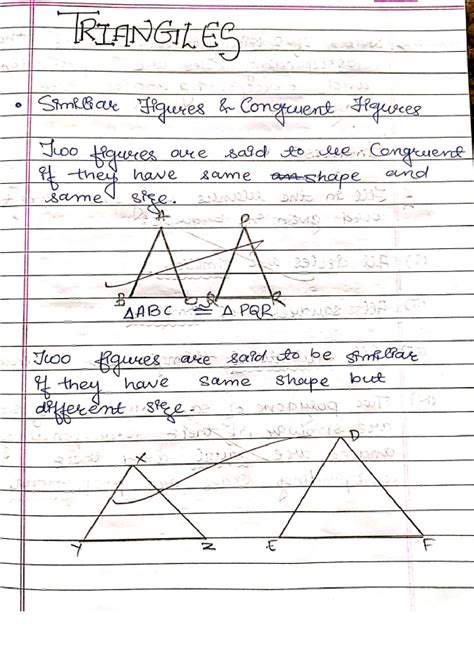 TRIANGLES
Similiar Figures & Congruent Figures
Two figures are said to be Congruent
if they have same shape and
same size.
A P
B C Q R
△ABC ≅ △PQR
Two figures are said to be similiar
if they have same shape but
different size.
X D
Y Z E F